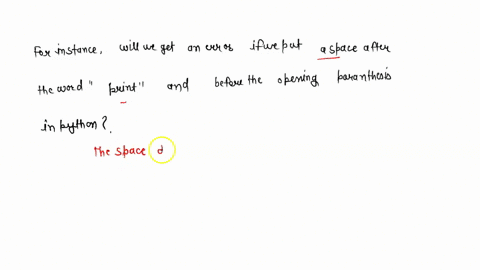 For instance, will we get an error if we put a space after
the word " print" and before the opening paranthesis
in python?
The space d